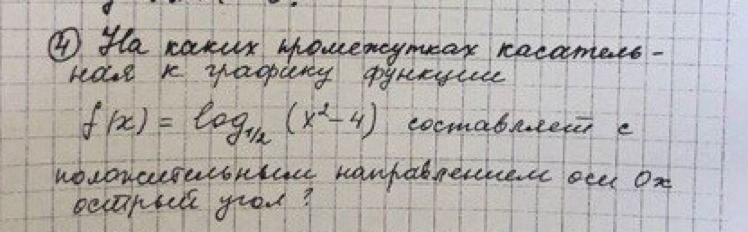 ④ На каких промежутках касатель-
ная к графику функции
f(x) = log₁/₂ (x²-4) составляет с
положительным направлением оси Ox
острый угол?